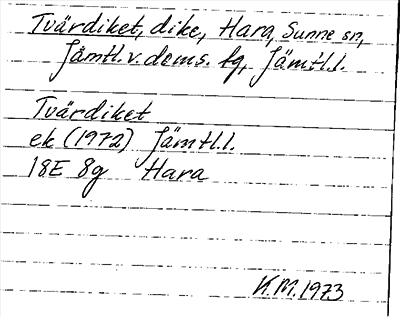 Tvärdiket, dike, Hara, Sunne sn,
Jämtl.v. doms. fg, Jämtl.l.
Tvärdiket
ek (1972) Jämtl.l.
18E 8g Hara
K.M. 1973